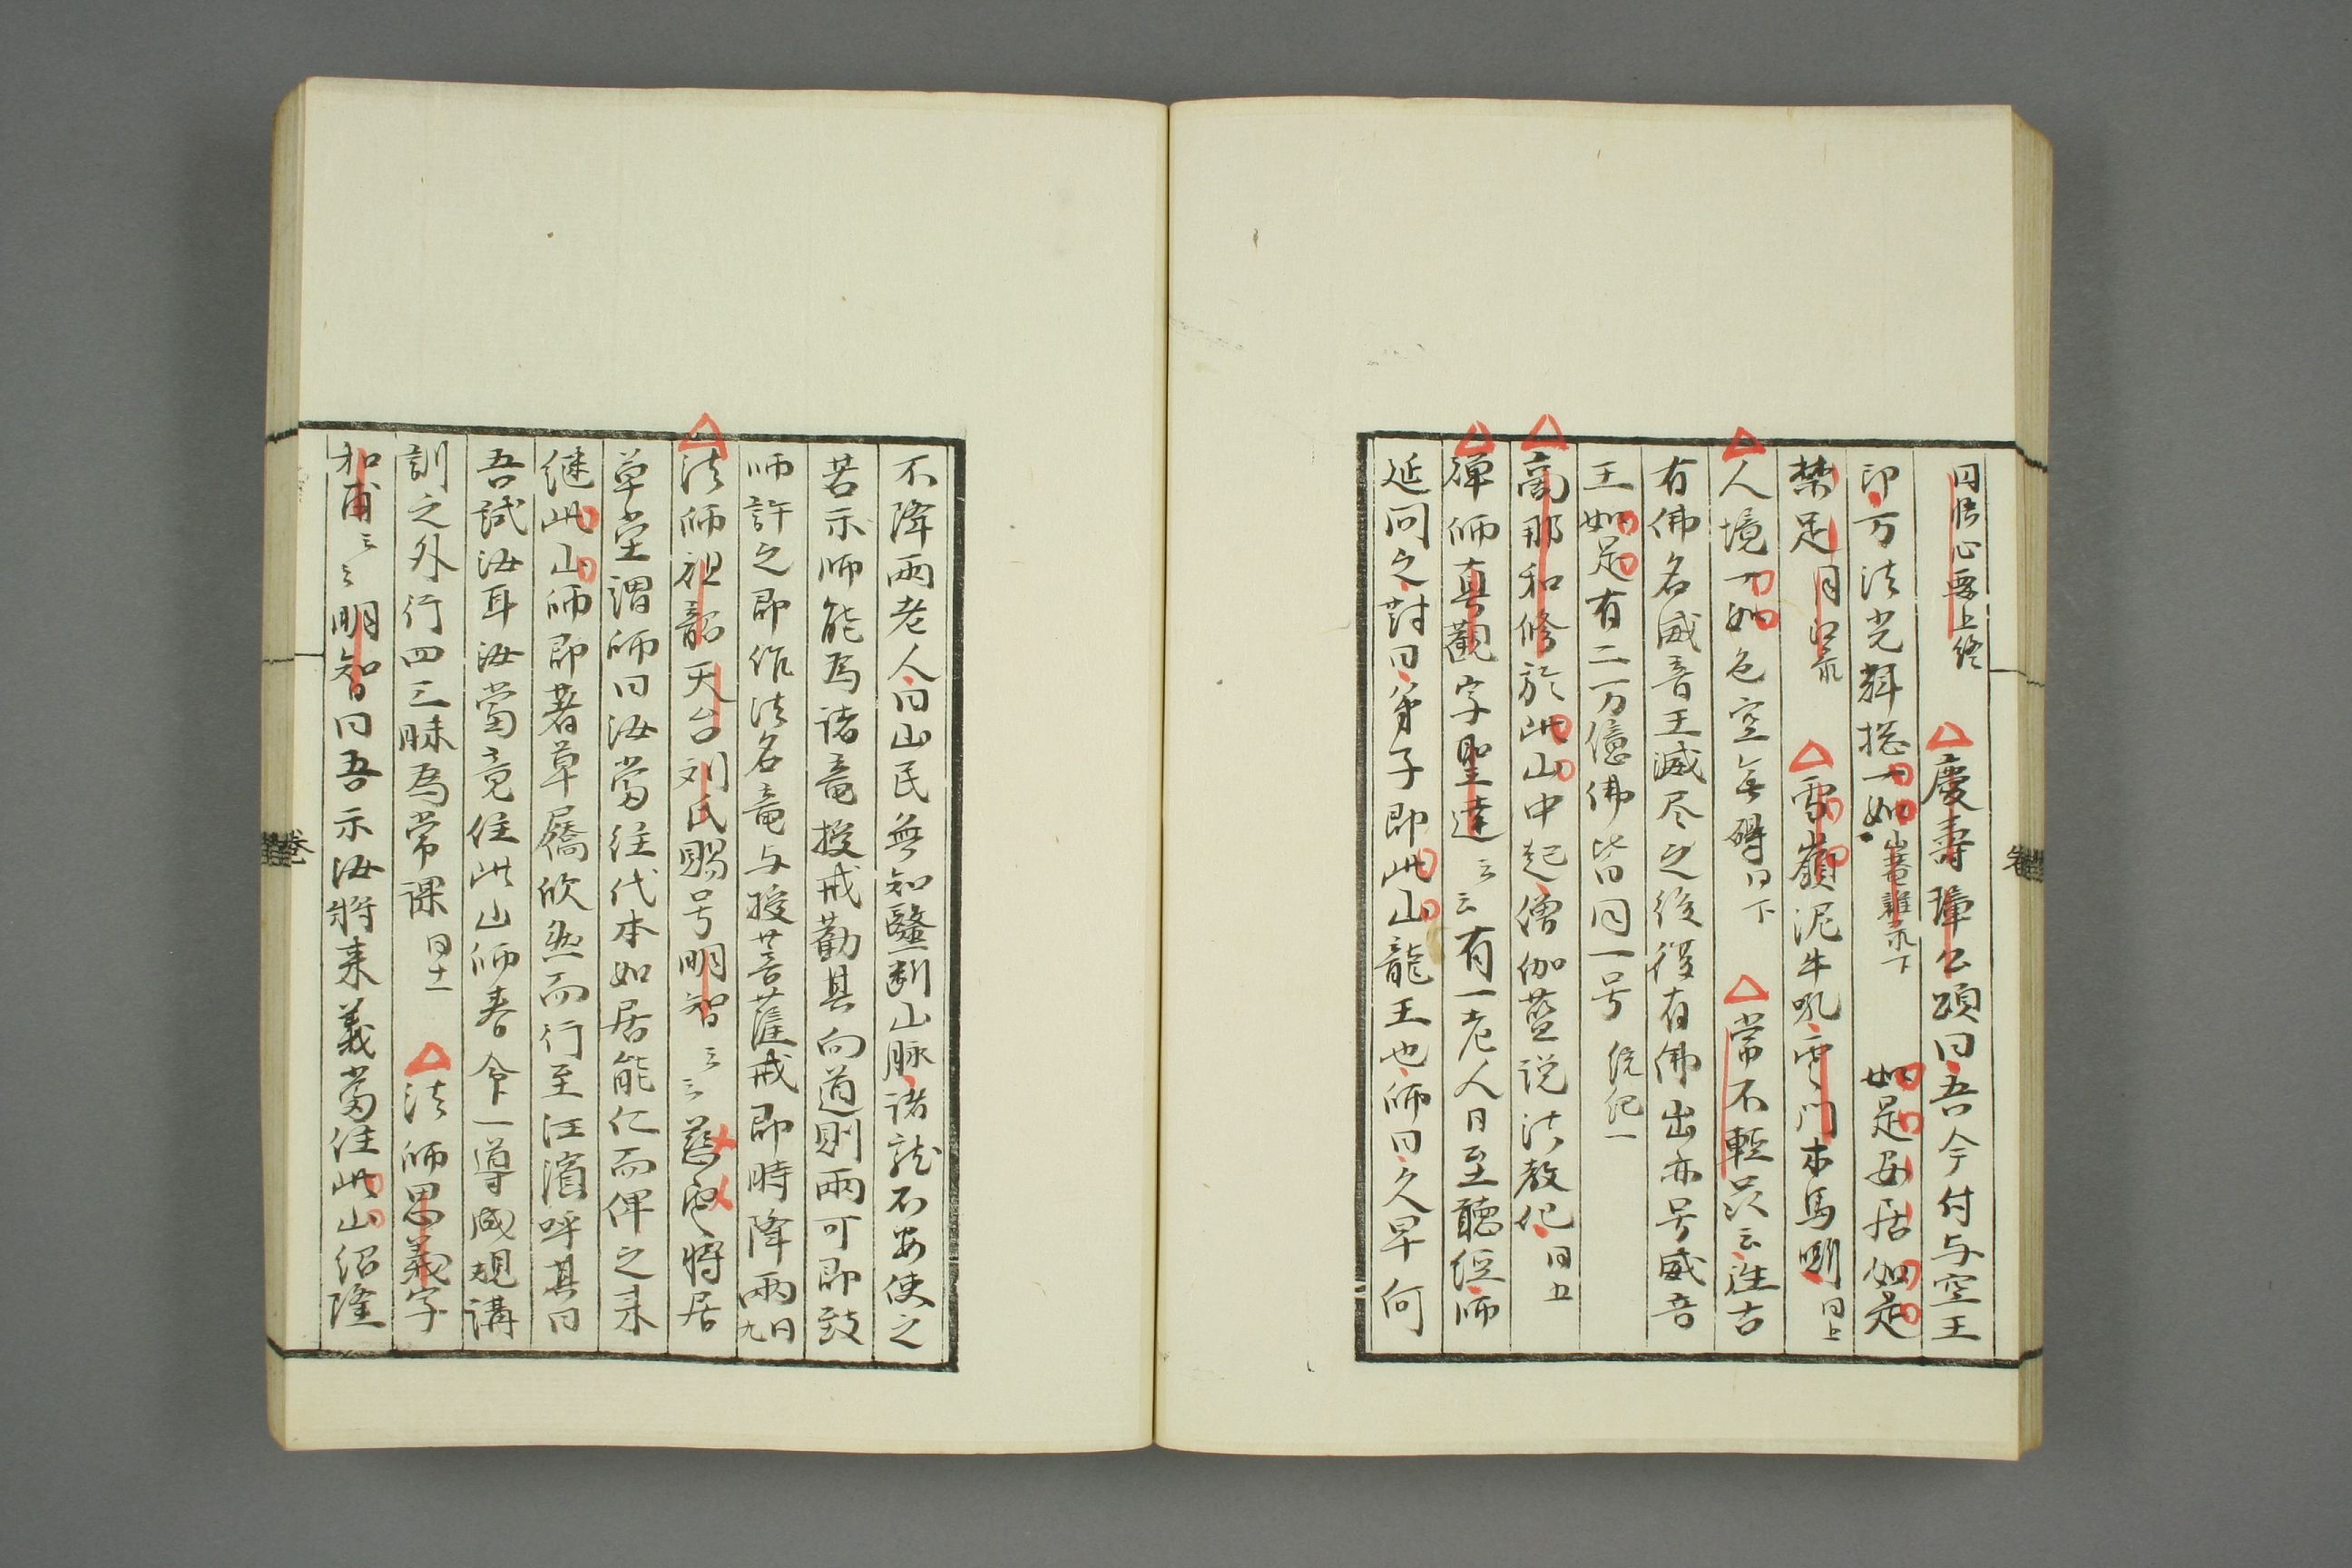 円悟心要上終　慶壽璋公頌曰吾今付与空王
印万法光輝揔一如山菴雜录下　如是安居如是
禁足月江录　雪嶺泥牛吼雲門木馬嘶同上
人境一如色空無礙同下　常不輕品云往古
有佛名威音王滅尽之後復有佛出亦号威音
王如是有二万億佛皆同一号　統紀一
商那和修於此山中起僧伽藍説法教化同五
禅師真觀字聖達云云有一老人日至聽經師
延问之対曰弟子即此山龍王也師曰久旱何
不降雨老人曰山民無知鑿断山脉諸龍不安使之
若示師能為諸竜授戒勸其向道則雨可即致
师許之即作法名竜与授菩薩戒即時降雨同九
法师祖韶天台刘氏賜号明智云云慈雲將居
草堂謂师曰汝當往代本如居能仁而俾之来
継此山师即著草屩欣然而行至江濱呼其曰
吾試汝耳汝當竟住此山师奉命一導成規講
訓之外行四三昧為常課同十一　法师思義字
和甫云云明智曰吾示汝將来義當住此山紹隆
卷
卷